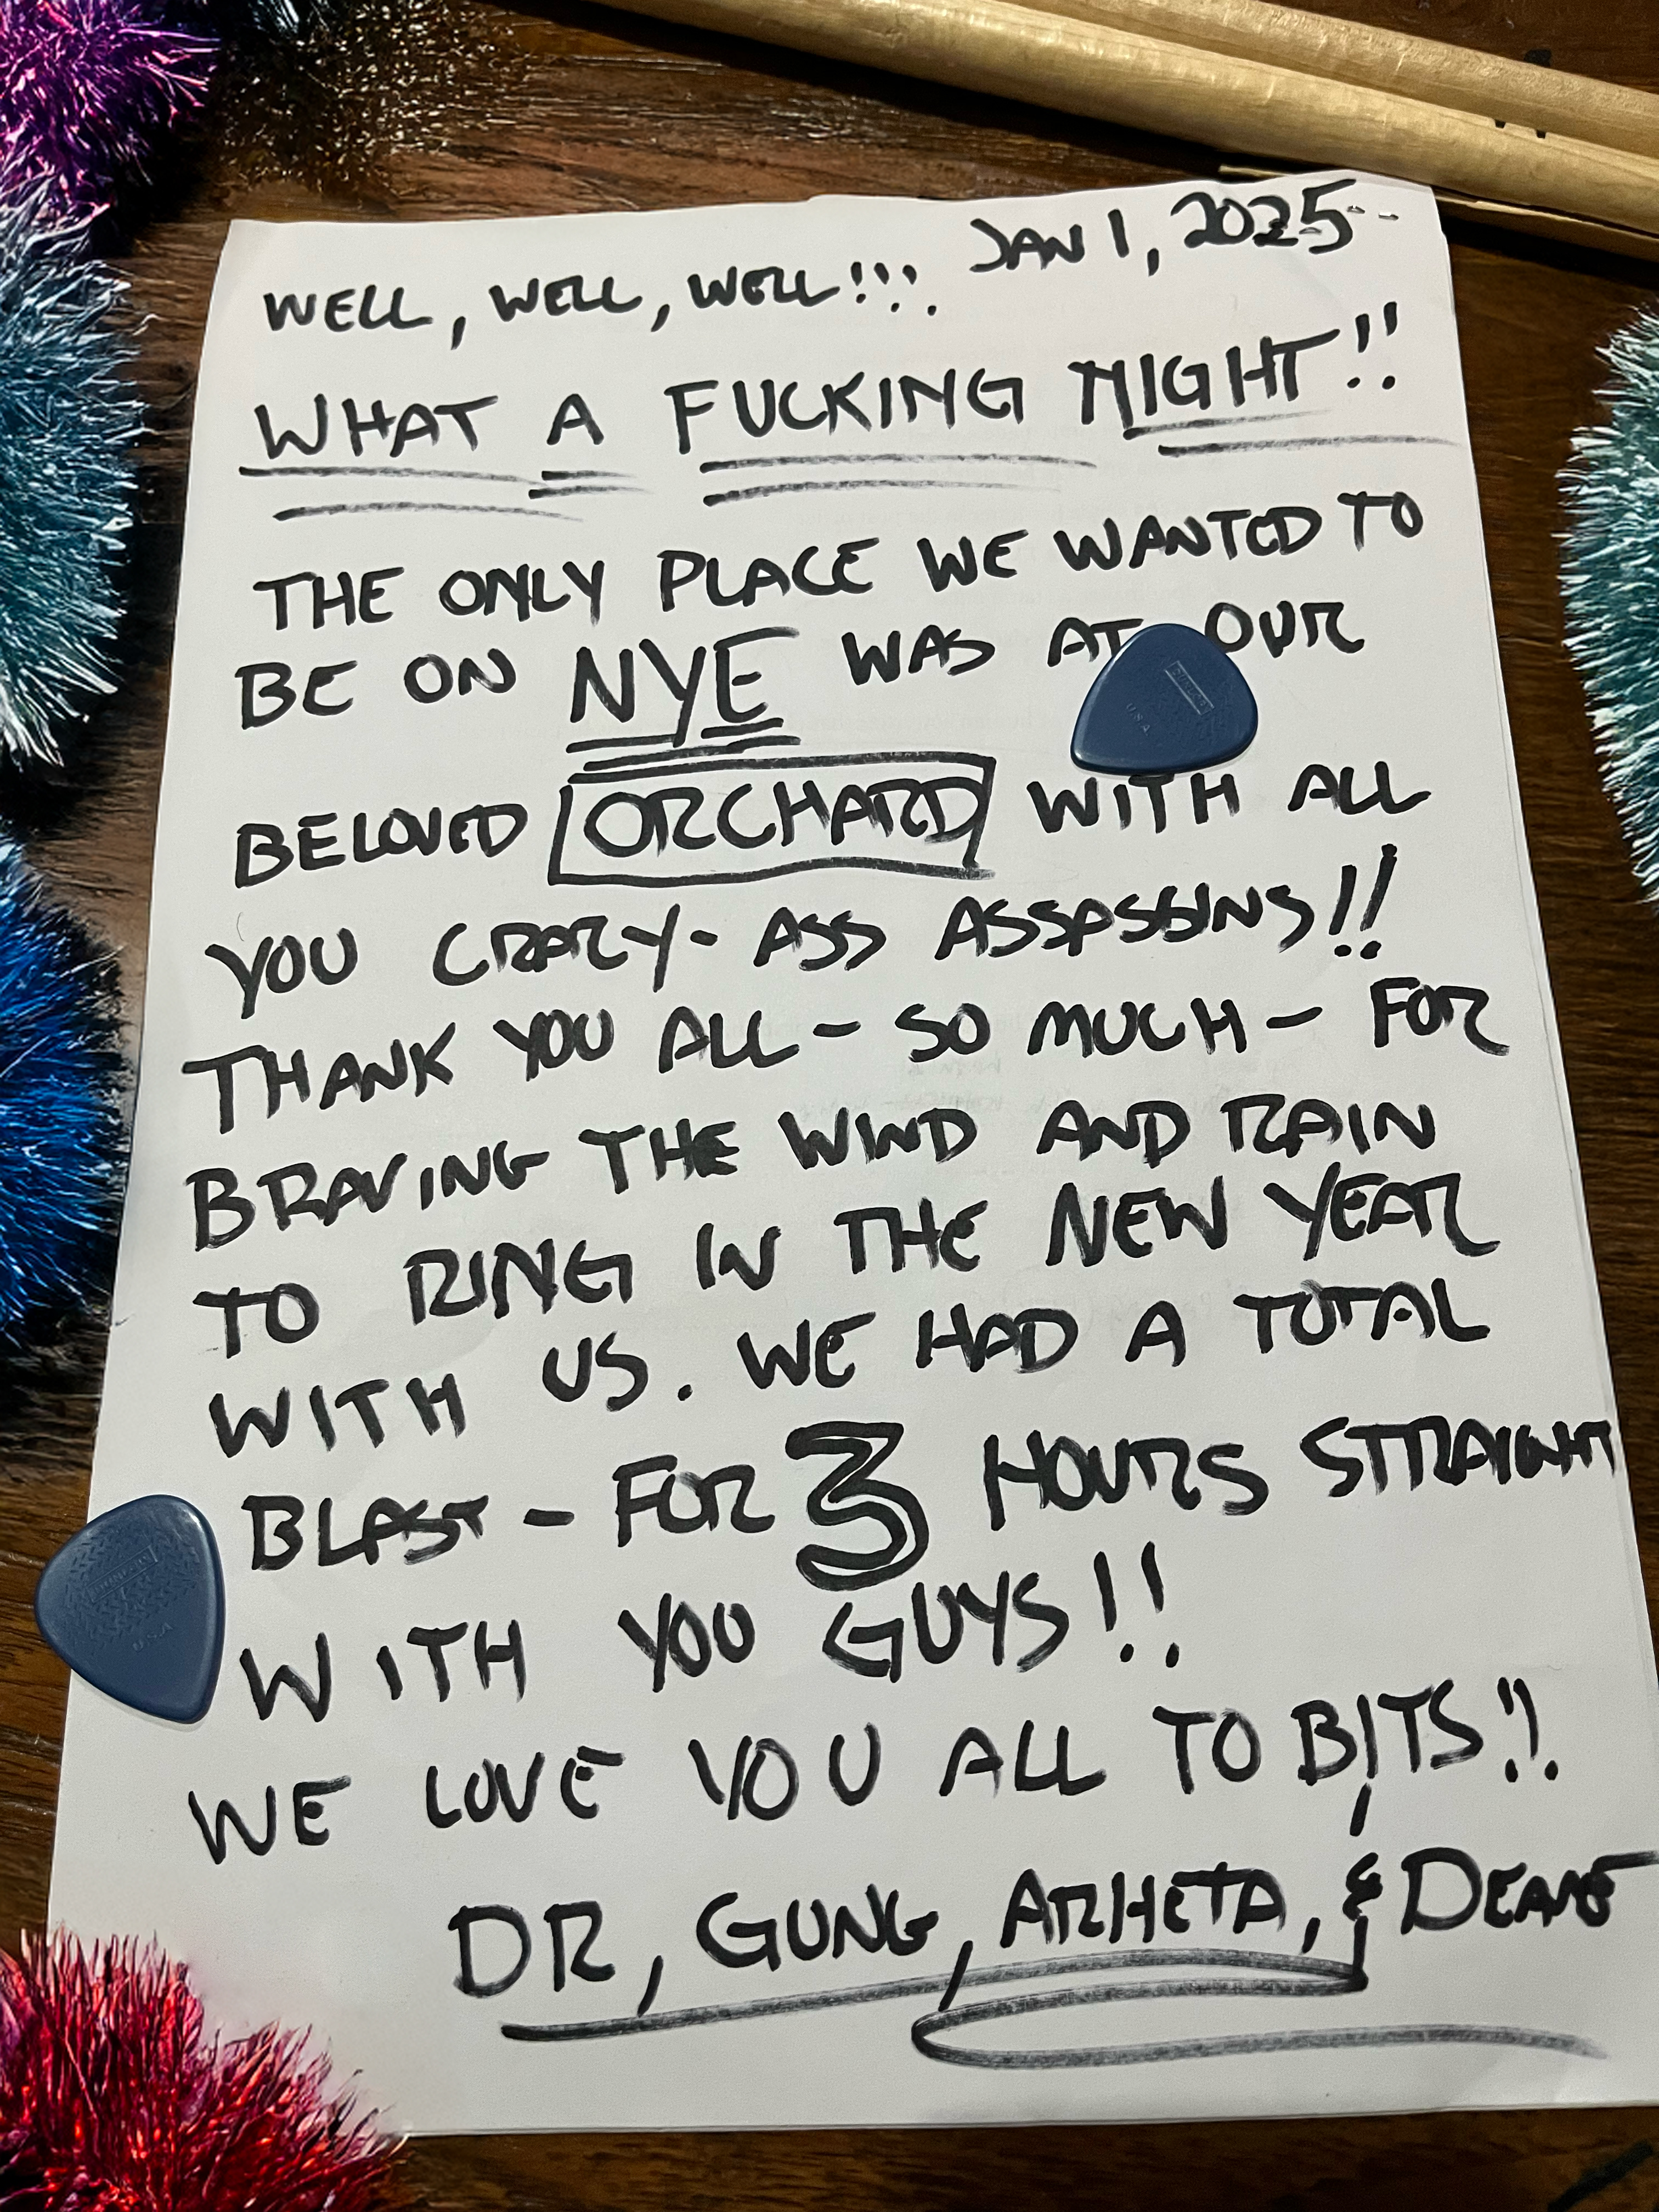 JAN 1, 2025--
WELL, WELL, WELL!!!
WHAT A FUCKING NIGHT!!
THE ONLY PLACE WE WANTED TO
BE ON NYE WAS AT OUR
BELOVED ORCHARD WITH ALL
YOU CRAZY-ASS ASSASSINS!!
THANK YOU ALL - SO MUCH - FOR
BRAVING THE WIND AND RAIN
TO RING IN THE NEW YEAR
WITH US. WE HAD A TOTAL
BLAST - FOR 3 HOURS STRAIGHT
WITH YOU GUYS!!
WE LOVE YOU ALL TO BITS!!
DR, GUNG, ARHETA, & DEANE
DUNLOP
USA
USA